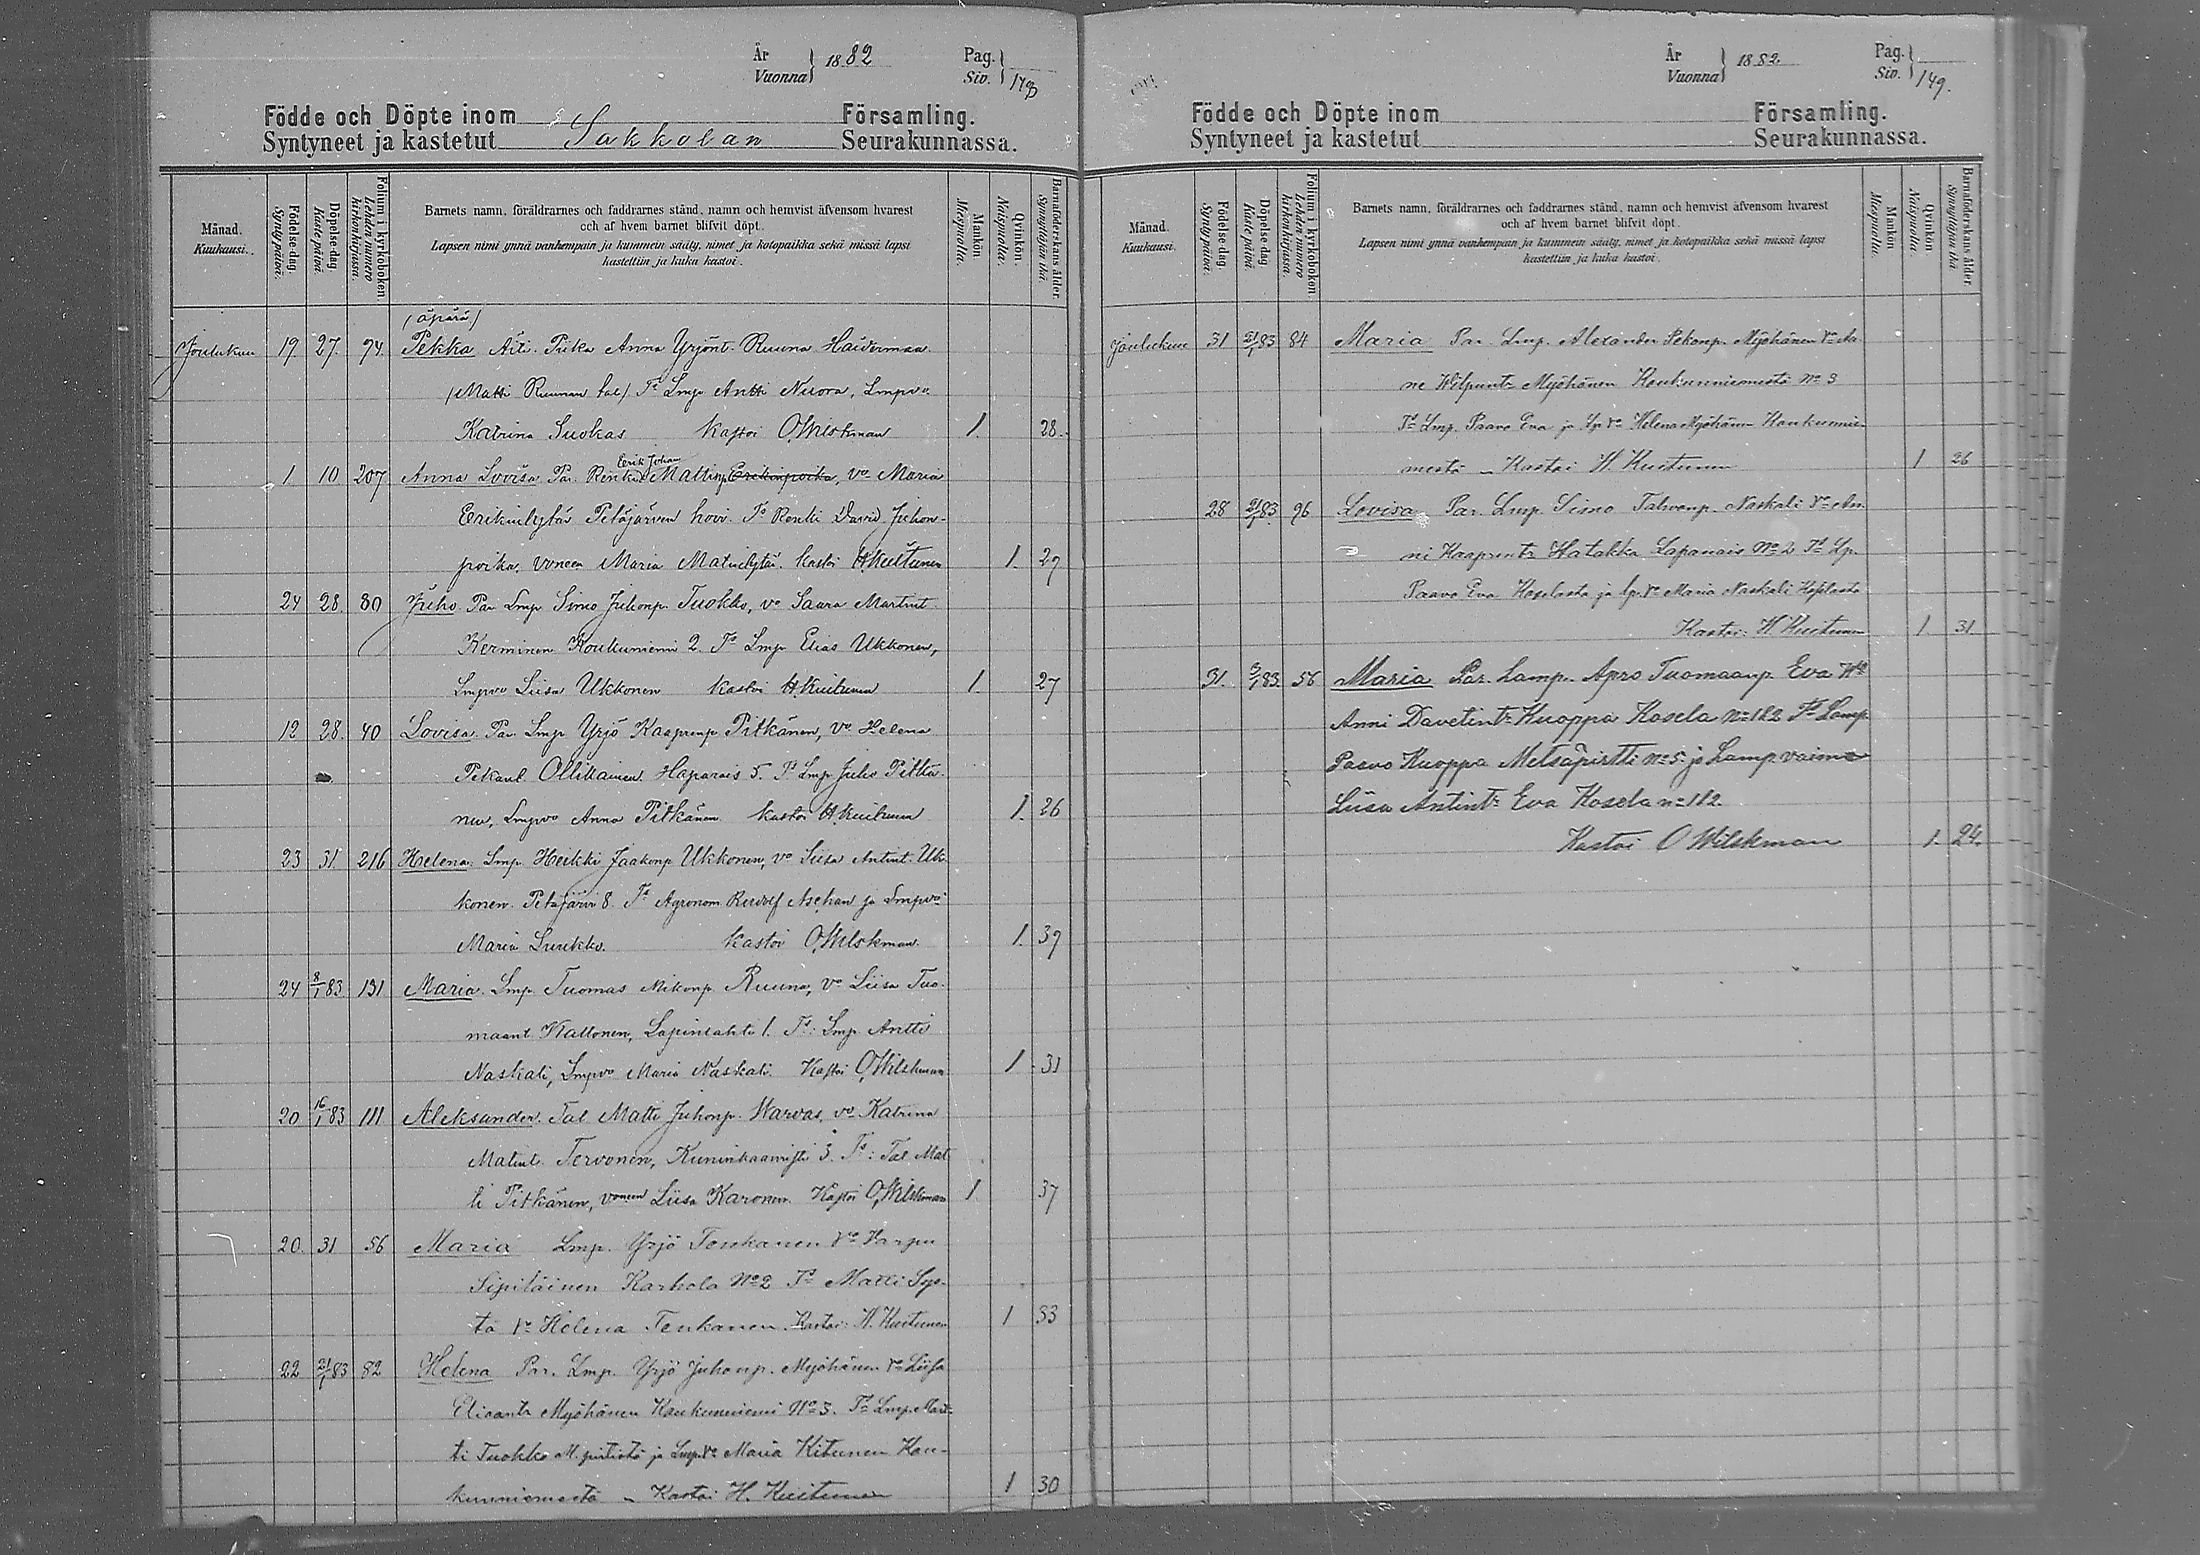 År
Vuonna } 1882
Pag.
Siv. } 148
Födde och Döpte inom Församling.
Syntyneet ja kastetut Sakkolan Seurakunnassa.
Månad.
Kuukausi.
Födelse-dag.
Syntypäivä.
Döpelse-dag.
Kaste päivä.
Folium i kyrkoboken
Lehden numero kirkonkirjassa.
Barnets namn, föräldrarnes och faddrarnes stånd, namn och hemvist äfvensom hvarest
och af hvem barnet blifvit döpt.
Lapsen nimi ynnä vanhempain ja kummein sääty, nimet ja kotopaikka sekä missä lapsi
kastettiin ja kuka kastoi.
Mankön
Miespuolia.
Qvinkön.
Naispuolia.
Barnaföderskans ålder.
Synnyttäjän ikä.
(äpärä)
Joulukuu 19 27. 94. Pekka Äiti. Piika Anna Yrjönt. Ruuna Haiderman
(Matti Ruunan tal) To Lmp Antti Nisora, Lmpvo
Katrina Suokas Kastoi O Wilskman 1. 28.
Erik Johan
1 10 207 Anna Lovisa Par. Renki Mattinp. Erikinpoika, vo Maria
Erikintytär Petäjärven hovi. To Renki David Juhon-
poika, vaimo Maria Matintytär. Kastoi H Kuitunen 1. 29
24 28 80 Juho Par Lmp Simo Juhonp. Tuokko, vo Saara Martint
Kerminen Koukuniemi 2. To Lmp Elias Ukkonen,
Lmpvo Liisa Ukkonen Kastoi H Kuitunen 1. 27
12 28. 40 Lovisa. Par Lmp Yrjö Kaapronp Pitkänen, vo Helena
Pekant. Ollikainen Haparais 5. To Lmp Juho Pitkä-
nen, Lmpvo Anna Pitkänen Kastoi H Kuitunen 1. 26
23 31. 216 Helena. Lmp. Heikki Jaakonp Ukkonen, vo Liisa Antint. Uk-
konen. Petäjärvi 8. To Agronom Rudolf Aschan ja Lmpvo
Maria Luukko. Kastoi O Wilskman. 1. 39
24 8/1 83 131 Maria. Lmp. Tuomas Mikonp. Ruuna, vo Liisa Tuo-
maant. Kaltonen, Lapinlahti 1. To: Lmp Antti
Naskali, Lmpvo Maria Naskali. Kastoi O Wilskman 1 33
20 16/1 83 111 Aleksander. Tal Matti Juhonp. Warvas, vo Katrina
Matint. Tervonen, 3. To: Tal Mat-
ti Pitkänen, Liisa Karonen. Kastoi O Wilskman 1 37
20. 31 56 Maria Lmp. Yrjö Tenkanen Vo Vargu
Sipiläinen Karhola No 2 To Matti
Vo Helena Tenkanen. Kastoi: H. Kuitunen 1 33
22 21/1 83 82 Helena Par. Lmp. Yrjö Juhonp. Myöhänen Vo Liisa
Eliaant Myöhänen Koukunniemi No 3. To Lmp. Mart-
ti Tuokko M. pirtistä ja Lmp. Vo Maria Kitunen Kou-
kunniemestä – Kastoi H. Kuitunen 1 30
År
Vuonna } 1882
Pag.
Siv. } 149.
Födde och Döpte inom Församling.
Syntyneet ja kastetut Seurakunnassa.
Månad.
Kuukausi.
Födelse-dag.
Syntypäivä.
Döpelse-dag.
Kaste päivä.
Folium i kyrkoboken
Lehden numero kirkonkirjassa.
Barnets namn, föräldrarnes och faddrarnes stånd, namn och hemvist äfvensom hvarest
och af hvem barnet blifvit döpt.
Lapsen nimi ynnä vanhempain ja kummein sääty, nimet ja kotopaikka sekä missä lapsi
kastettiin ja kuka kastoi.
Mankön
Miespuolia.
Qvinkön
Naispuolia.
Barnaföderskans ålder.
Synnyttäjän ikä
Joulukuu 31 21/1 83 84 Maria Par. Lmp. Alexander Pekonp. Myöhänen Vo An-
ne Wilpunt Myöhänen Koukunniemestä No 3
To Lmp. Paavo Eva ja Lp. Vo Helena Myöhänen Koukunnie-
mestä – Kastoi H. Kuitunen 1 26
28 21/1 83 96 Lovisa Par. Lmp. Simo Tahvonp. Naskali Vo An-
ni Kaaprent Hatakka Lapanais No 2 To Lp.
Paavo Eva Koselasta ja Lp. Vo Maria Naskali Koselasta
Kastoi: H Kuitunen 1 31
31. 83. 56 Maria Par. Lamp. Apro Tuomaanp. Eva
Anni Davetint Kuoppa Kosela No 1&2 To Lamp.
Paavo Kuoppa Metsäpirtti No 5. ja Lamp. vaimo
Liisa Antint Eva Kosela no 1&2.
Kastoi O Wilskman 1. 24.